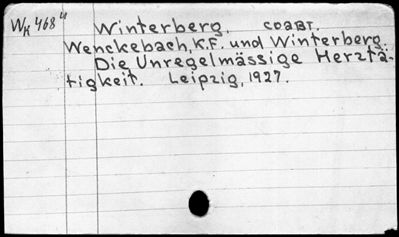 Wк 468" Winterberg, соавт.
Wenckebach, K.F. und Winterberg.
Die Unregelmässige Herztä-
tigkeit. Leipzig, 1927.